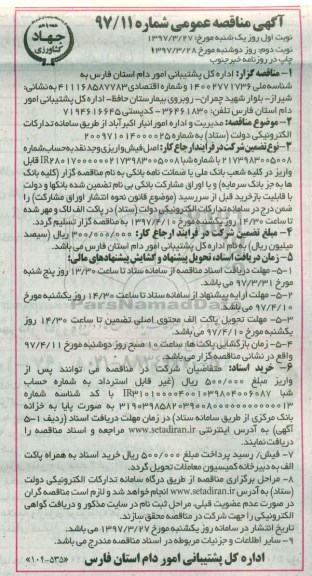 آگهی مناقصه عمومی شماره ۹۷/۱۱
نوبت اول روز یک شنبه مورخ ۱۳۹۷/۳/۲۷
نوبت دوم: روز دوشنبه مورخ ۱۳۹۷/۳/۲۸
چاپ در روزنامه خبرجنوب
جهاد کشاورزی
۱- مناقصه گزار: اداره کل پشتیبانی امور دام استان فارس به
شناسه ملی ۱۴۰۰۲۷۷۱۷۳۶ و شماره اقتصادی ۴۱۱۱۶۸۵۸۷۷۸۳ به نشانی:
شیراز- بلوار شهید چمران- روبروی بیمارستان حافظ- اداره کل پشتیبانی امور
دام استان فارس تلفن: ۳۶۴۶۱۸۳۰- کدپستی ۷۱۹۴۶۱۶۶۴۵
۲- موضوع مناقصه: مدیریت و اداره امور انبار اکبرآباد از طریق سامانه تدارکات
الکترونیکی دولت (ستاد) به شماره ۲۰۰۹۷۱۰۱۴۰۰۰۰۲۵
۳- نوع تضمین شرکت در فرآیند ارجاع کار: اصل فیش واریزی وجد نقد به حساب شماره
۲۱۷۳۹۸۳۰۰۵۰۰۸ با شماره شبا
واریز در کلیه شعب بانک ملی یا ضمانت نامه بانکی به نام مناقصه گزار (کلیه بانک
ها به جز بانک سرمایه) و یا اوراق مشارکت بانکی بی نام تضمین شده بانکها و دولت
با قابلیت بازخرید قبل از سررسید (موضوع قانون نحوه انتشار اوراق مشارکت) را
ضمن درج در سامانه تدارکات الکترونیکی دولت (ستاد) در پاکت الف لاک و مهر شده
تا ساعت ۱۴/۳۰ روز یکشنبه مورخ ۱۳۹۷/۴/۱۰ به مناقصه گزار تسلیم گردد.
۴- مبلغ تضمین شرکت در فرآیند ارجاع کار: ۳۰۰/۰۰۰/۰۰۰ ریال (سیصد
میلیون ریال) به نام اداره کل پشتیبانی امور دام استان فارس می باشد.
۵- زمان دریافت اسناد، تحویل پیشنهاد و گشایش پیشنهادهای مالی:
۵-۱- مهلت دریافت اسناد مناقصه از سامانه ستاد تا ساعت ۱۳/۳۰ روز پنج شنبه
مورخ ۹۷/۳/۳۱ می باشد.
۵-۲- مهلت ارایه پیشنهاد از سامانه ستاد تا ساعت ۱۴/۳۰ روز یکشنبه مورخ
۹۷/۴/۱۰ می باشد.
۵-۳- مهلت تحویل پاکت الف محتوی اصلی تضمین تا ساعت ۱۴/۳۰ روز
یکشنبه مورخ ۹۷/۴/۱۰ می باشد.
۵-۴- زمان بازگشایی پاکت ها: ساعت ۱۰ صبح روز دوشنبه مورخ ۹۷/۴/۱۱
واقع در نشانی مناقصه گزار می باشد.
۶- خرید اسناد: متقاضیان شرکت در مناقصه می توانند پس از
واریز مبلغ ۵۰۰/۰۰۰ ریال (غیر قابل استرداد به شماره حساب
شبا با کد شناسه شماره
به صورت پایا به خزانه
بانک مرکزی از طریق سامانه ستاد) در زمان مهلت دریافت اسناد (ردیف ۱-۵
آگهی) به آدرس اینترنتی www.setadiran.ir مراجعه و اسناد مناقصه را
دریافت نمایند.
۷- فیش/ رسید پرداخت مبلغ ۵۰۰/۰۰۰ ریال خرید اسناد به همراه پاکت
الف به دبیرخانه کمیسیون معاملات تحویل گردد.
۸- مراحل برگزاری مناقصه از طریق درگاه سامانه تدارکات الکترونیکی دولت
(ستاد) به آدرس www.setadiran.ir انجام خواهد شد و لازم است مناقصه گران
در صورت عدم عضویت قبلی، مراحل ثبت نام در سایت مذکور و دریافت گواهی
الکترونیکی را جهت شرکت در مناقصه محقق سازند.
تاریخ انتشار در سامانه روز یکشنبه مورخ ۱۳۹۷/۳/۲۷ می باشد.
۹- سایر اطلاعات و جزئیات مربوطه در اسناد مناقصه مندرج می باشد.
اداره کل پشتیبانی امور دام استان فارس
«۱۰۹-۵۳۵»